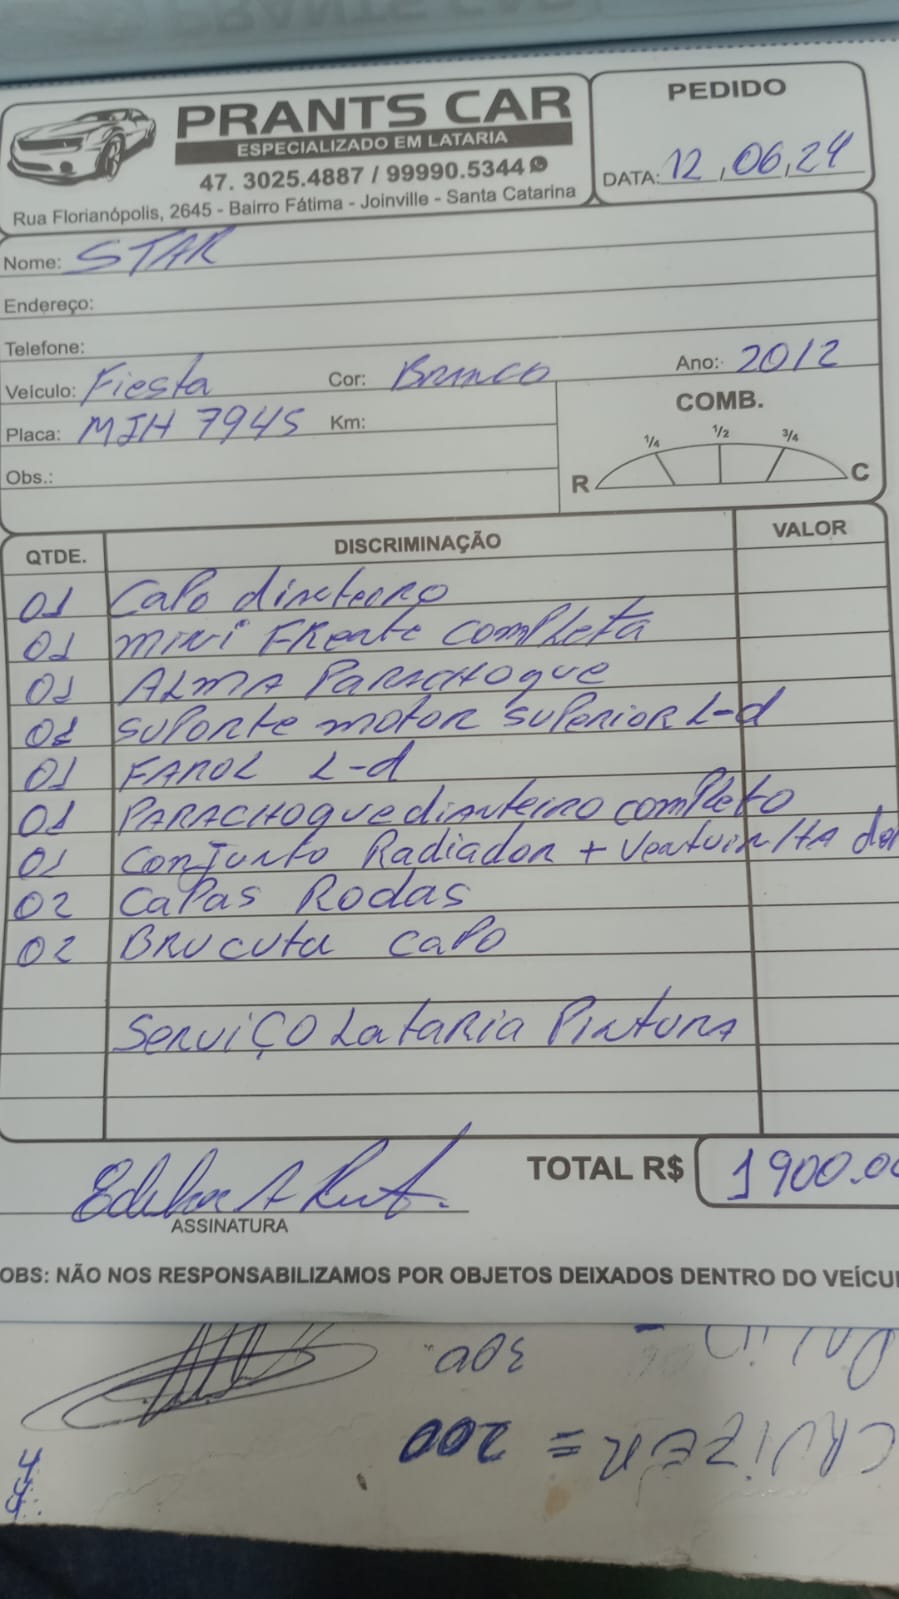 PRANTS CAR
ESPECIALIZADO EM LATARIA
47. 3025.4887 / 99990.5344
Rua Florianópolis, 2645 - Bairro Fátima - Joinville - Santa Catarina
PEDIDO
DATA: 12,06,24
Nome: STAR
Endereço:
Telefone:
Veículo: Fiesta Cor: Branco Ano: 2012
Placa: MJH 7945 Km:
Obs.:
COMB.
R 1/4 1/2 3/4 C
QTDE. DISCRIMINAÇÃO VALOR
01 Capo dianteiro
01 mini Frente completa
01 ALMA PARACHOque
01 suporte motor superior L-d
01 FAROL L-d
01 PARACHOque diAnteiro completo
01 Conjunto Radiador + VentuinHA
02 Capas Rodas
02 BRUCUTU capo
SERVIÇO LataRIA PINTURA
ASSINATURA
TOTAL R$ 1900.00
OBS: NÃO NOS RESPONSABILIZAMOS POR OBJETOS DEIXADOS DENTRO DO VEÍCU
300
CRUIZER = 200